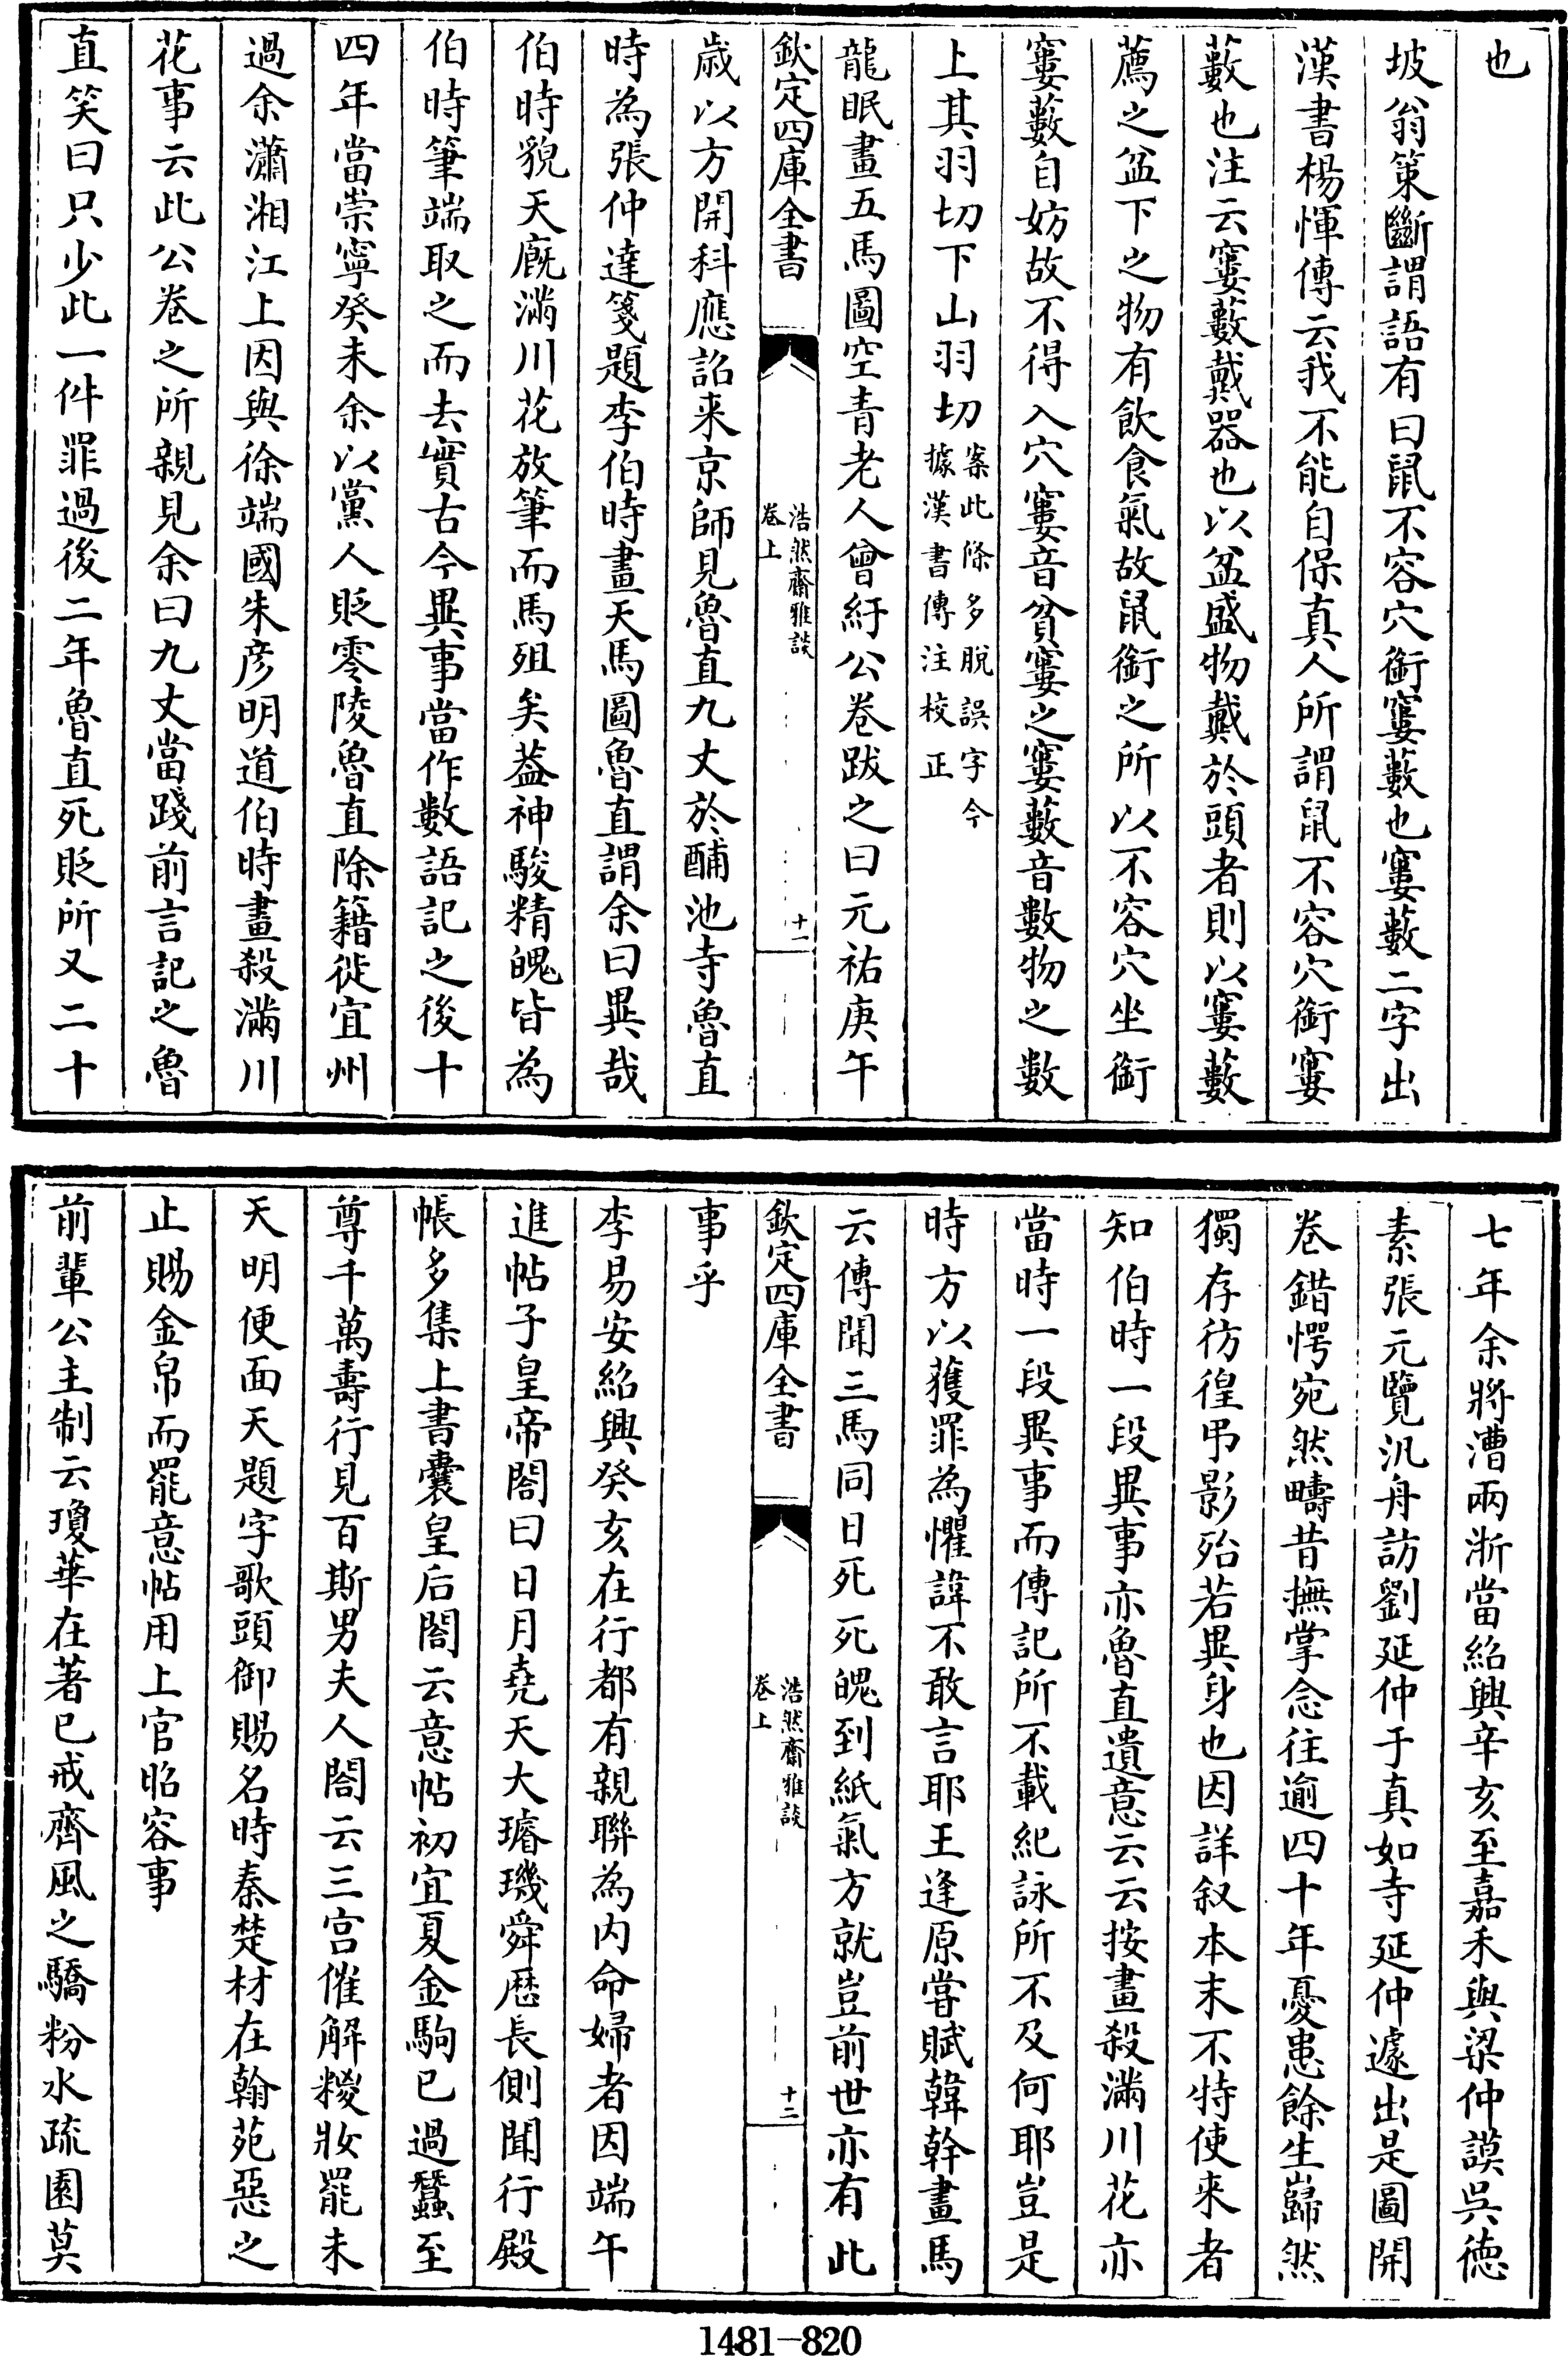 也
坡翁策斷謂語有曰鼠不容穴銜窶藪也窶藪二字出
漢書楊惲傳云我不能自保真人所謂鼠不容穴銜窶
藪也注云窶藪戴器也以盆盛物戴於頭者則以窶藪
薦之盆下之物有飲食氣故鼠銜之所以不容穴坐銜
窶藪自妨故不得入穴窶音貧窶之窶藪音數物之數
上其羽切下山羽切案此條多脫誤字今
據漢書傳注校正
龍眠畫五馬圖空青老人曾紆公卷跋之曰元祐庚午
欽定四庫全書
浩然齋雅談
卷上
十一
歲以方開科應詔来京師見魯直九丈於酺池寺魯直
時為張仲達箋題李伯時畫天馬圖魯直謂余曰異哉
伯時貌天廐滿川花放筆而馬殂矣葢神駿精魄皆為
伯時筆端取之而去實古今異事當作數語記之後十
四年當崇寧癸未余以黨人貶零陵魯直除籍徙宜州
過余瀟湘江上因與徐端國朱彦明道伯時畫殺滿川
花事云此公卷之所親見余曰九丈當踐前言記之魯
直笑曰只少此一件罪過後二年魯直死貶所又二十
七年余將漕兩浙當紹興辛亥至嘉禾與梁仲謨吳徳
素張元覽汎舟訪劉延仲于真如寺延仲遽出是圖開
卷錯愕宛然疇昔撫掌念往逾四十年憂患餘生巋然
獨存彷徨弔影殆若異身也因詳叙本末不特使来者
知伯時一段異事亦魯直遺意云云按畫殺滿川花亦
當時一段異事而傳記所不載紀詠所不及何耶豈是
時方以獲罪為懼諱不敢言耶王逢原嘗賦韓幹畫馬
云傳聞三馬同日死死魄到紙氣方就豈前世亦有此
欽定四庫全書
浩然齋雅談
卷上
十二
事乎
李易安紹興癸亥在行都有親聯為内命婦者因端午
進帖子皇帝閤曰日月堯天大璿璣舜厯長側聞行殿
帳多集上書囊皇后閤云意帖初宜夏金駒已過蠶至
尊千萬壽行見百斯男夫人閤云三宮催解糉妝罷未
天明便面天題字歌頭御賜名時秦楚材在翰苑惡之
止賜金帛而罷意帖用上官昭容事
前輩公主制云瓊華在著已戒齊風之驕粉水疏園莫
1481-820